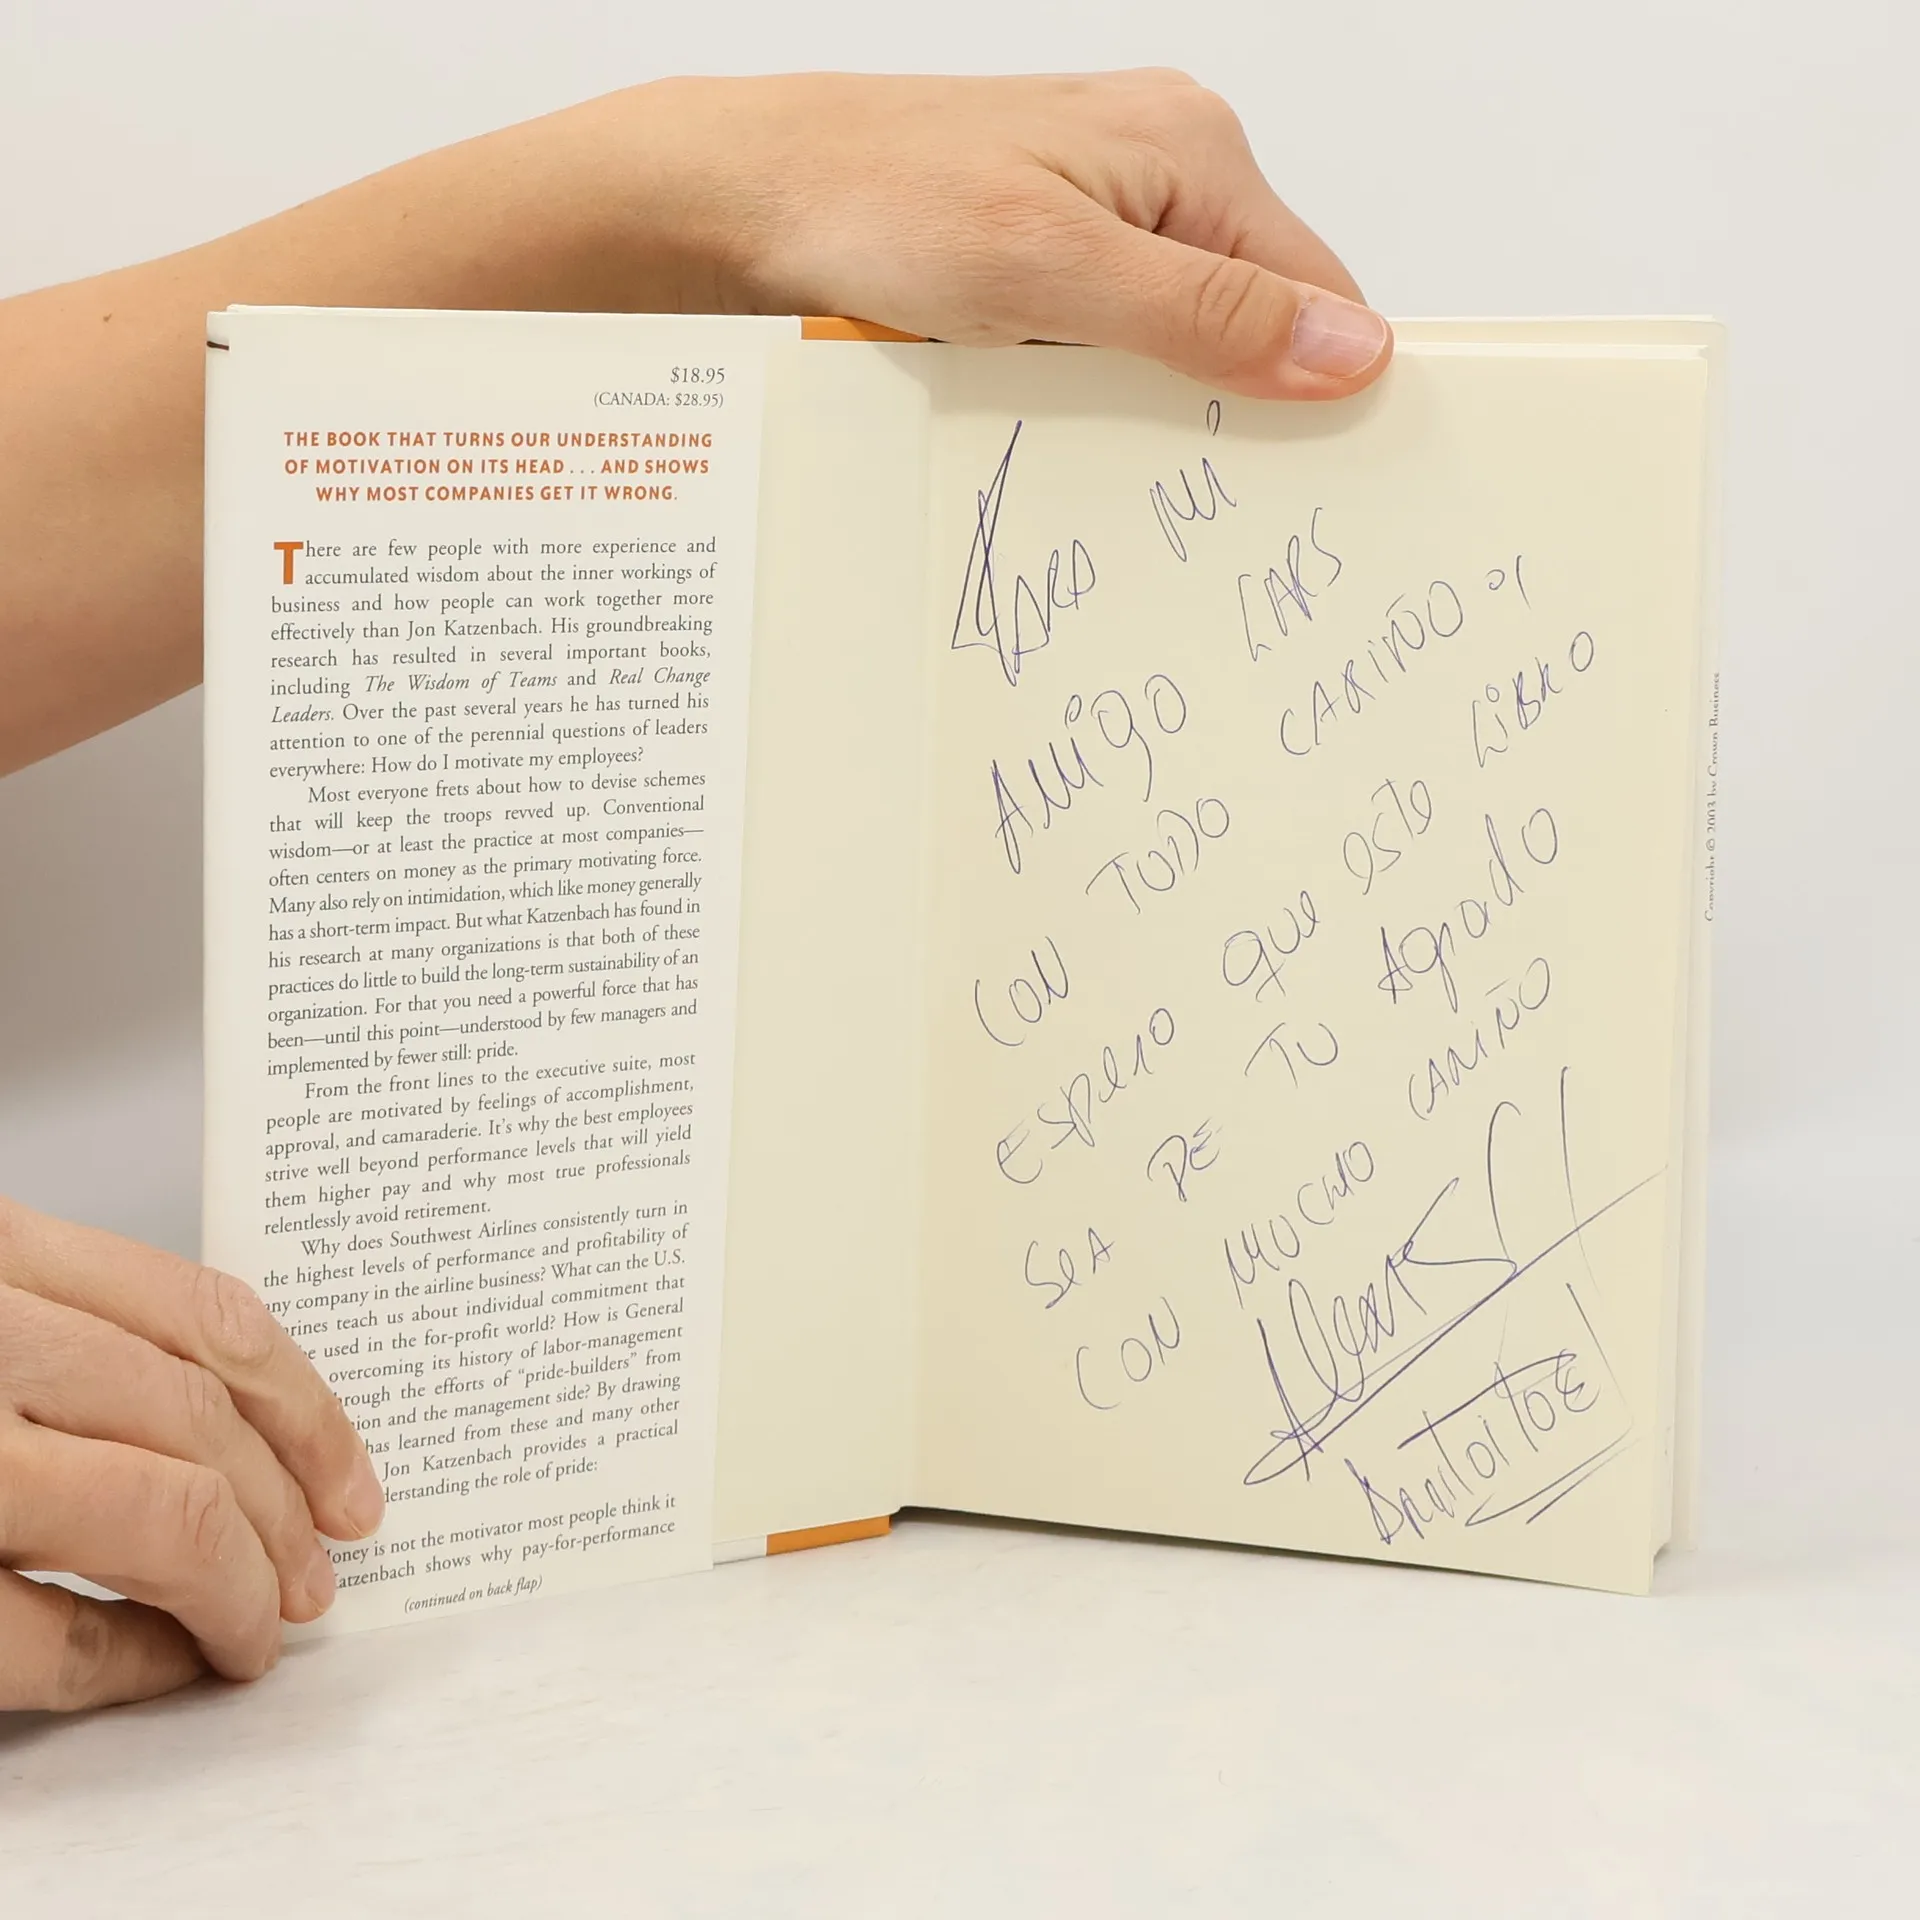 $18.95
(CANADA: $28.95)
THE BOOK THAT TURNS OUR UNDERSTANDING
OF MOTIVATION ON ITS HEAD . . . AND SHOWS
WHY MOST COMPANIES GET IT WRONG.
There are few people with more experience and
accumulated wisdom about the inner workings of
business and how people can work together more
effectively than Jon Katzenbach. His groundbreaking
research has resulted in several important books,
including The Wisdom of Teams and Real Change
Leaders. Over the past several years he has turned his
attention to one of the perennial questions of leaders
everywhere: How do I motivate my employees?
Most everyone frets about how to devise schemes
that will keep the troops revved up. Conventional
wisdom—or at least the practice at most companies—
often centers on money as the primary motivating force.
Many also rely on intimidation, which like money generally
has a short-term impact. But what Katzenbach has found in
his research at many organizations is that both of these
practices do little to build the long-term sustainability of an
organization. For that you need a powerful force that has
been—until this point—understood by few managers and
implemented by fewer still: pride.
From the front lines to the executive suite, most
people are motivated by feelings of accomplishment,
approval, and camaraderie. It's why the best employees
strive well beyond performance levels that will yield
them higher pay and why most true professionals
relentlessly avoid retirement.
Why does Southwest Airlines consistently turn in
the highest levels of performance and profitability of
any company in the airline business? What can the U.S.
rines teach us about individual commitment that
e used in the for-profit world? How is General
overcoming its history of labor-management
hrough the efforts of "pride-builders" from
ion and the management side? By drawing
has learned from these and many other
Jon Katzenbach provides a practical
derstanding the role of pride:
oney is not the motivator most people think it
atzenbach shows why pay-for-performance
(continued on back flap)
PARA MI
AMIGO LARS
CON TODO CARIÑO
ESPERO QUE ESTE LIBRO
SEA DE TU AGRADO
CON MUCHO CARIÑO
Copyright © 2003 by Crown Business